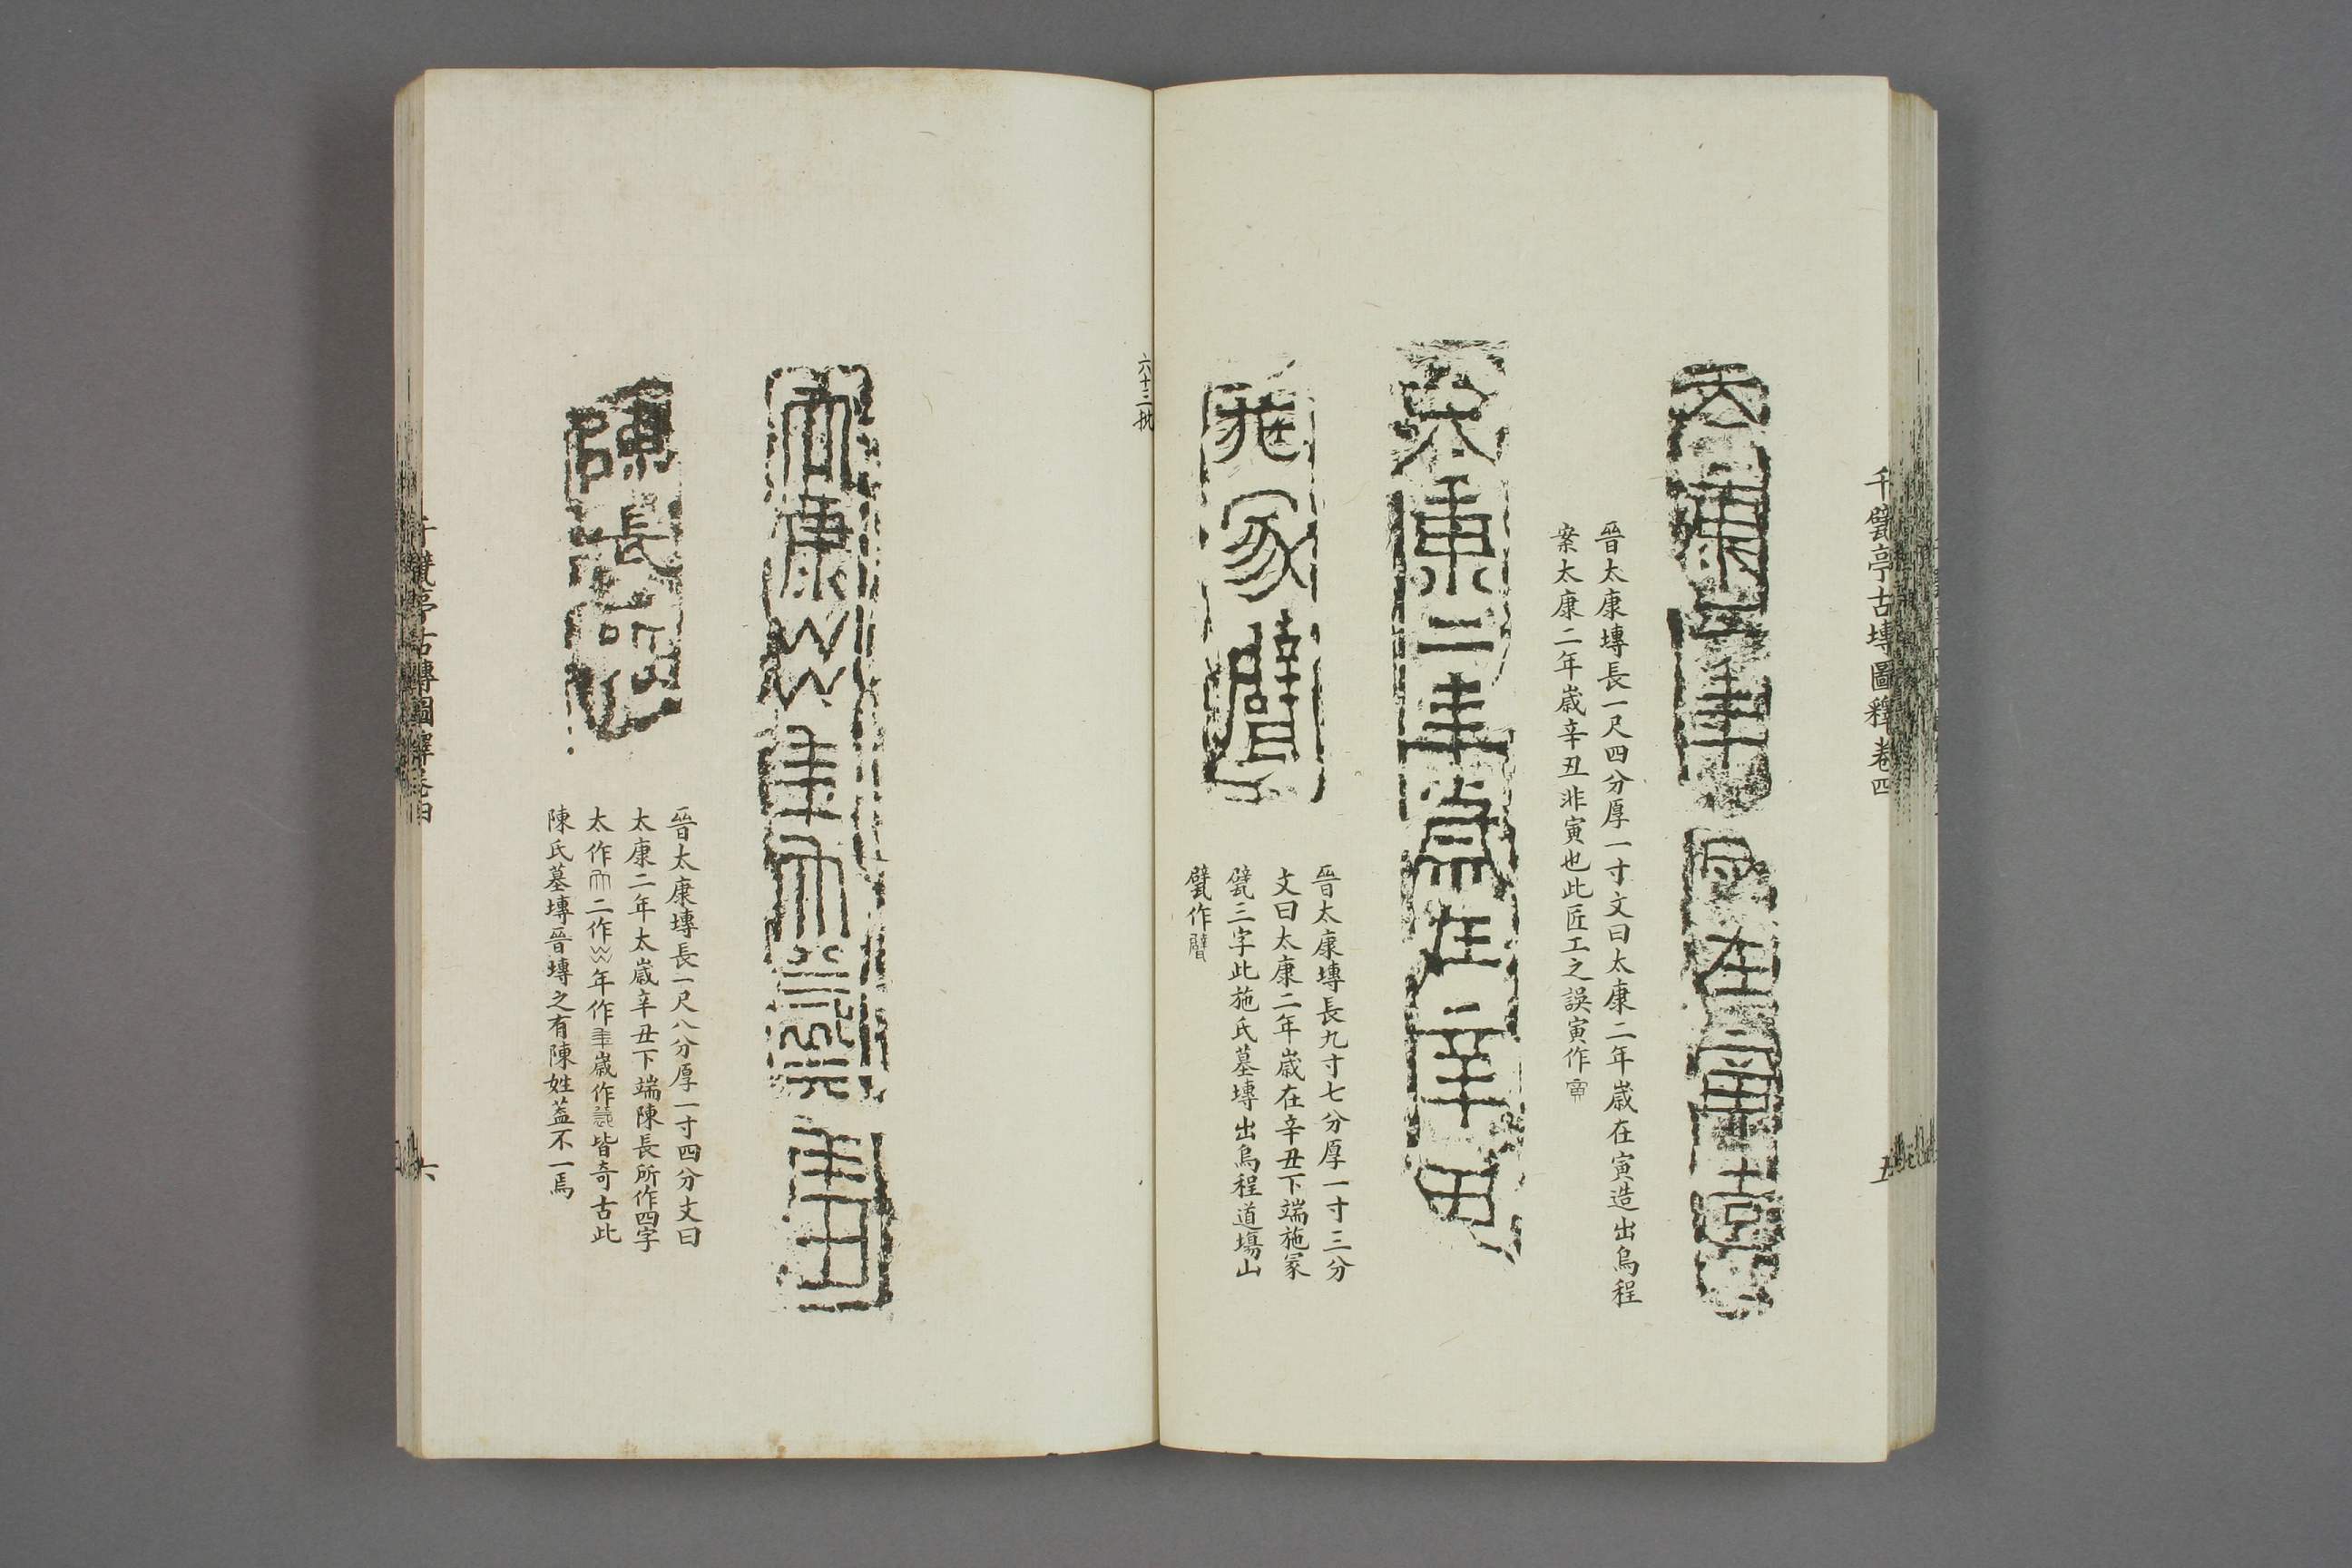 千甓亭古塼圖釋卷四
五
晉太康塼長一尺四分厚一寸文曰太康二年歲在寅造出烏程
案太康二年歲辛丑非寅也此匠工之誤寅作
太康二年歲在辛丑
施冢甓
晉太康塼長九寸七分厚一寸三分
文曰太康二年歲在辛丑下端施冢
甓三字此施氏墓塼出烏程道場山
甓作
六十三批
陳長所作
晉太康塼長一尺八分厚一寸四分文曰
太康二年太歲辛丑下端陳長所作四字
太作 二作 年作 歲作 皆奇古此
陳氏墓塼晉塼之有陳姓蓋不一焉
千甓亭古塼圖釋卷四
六